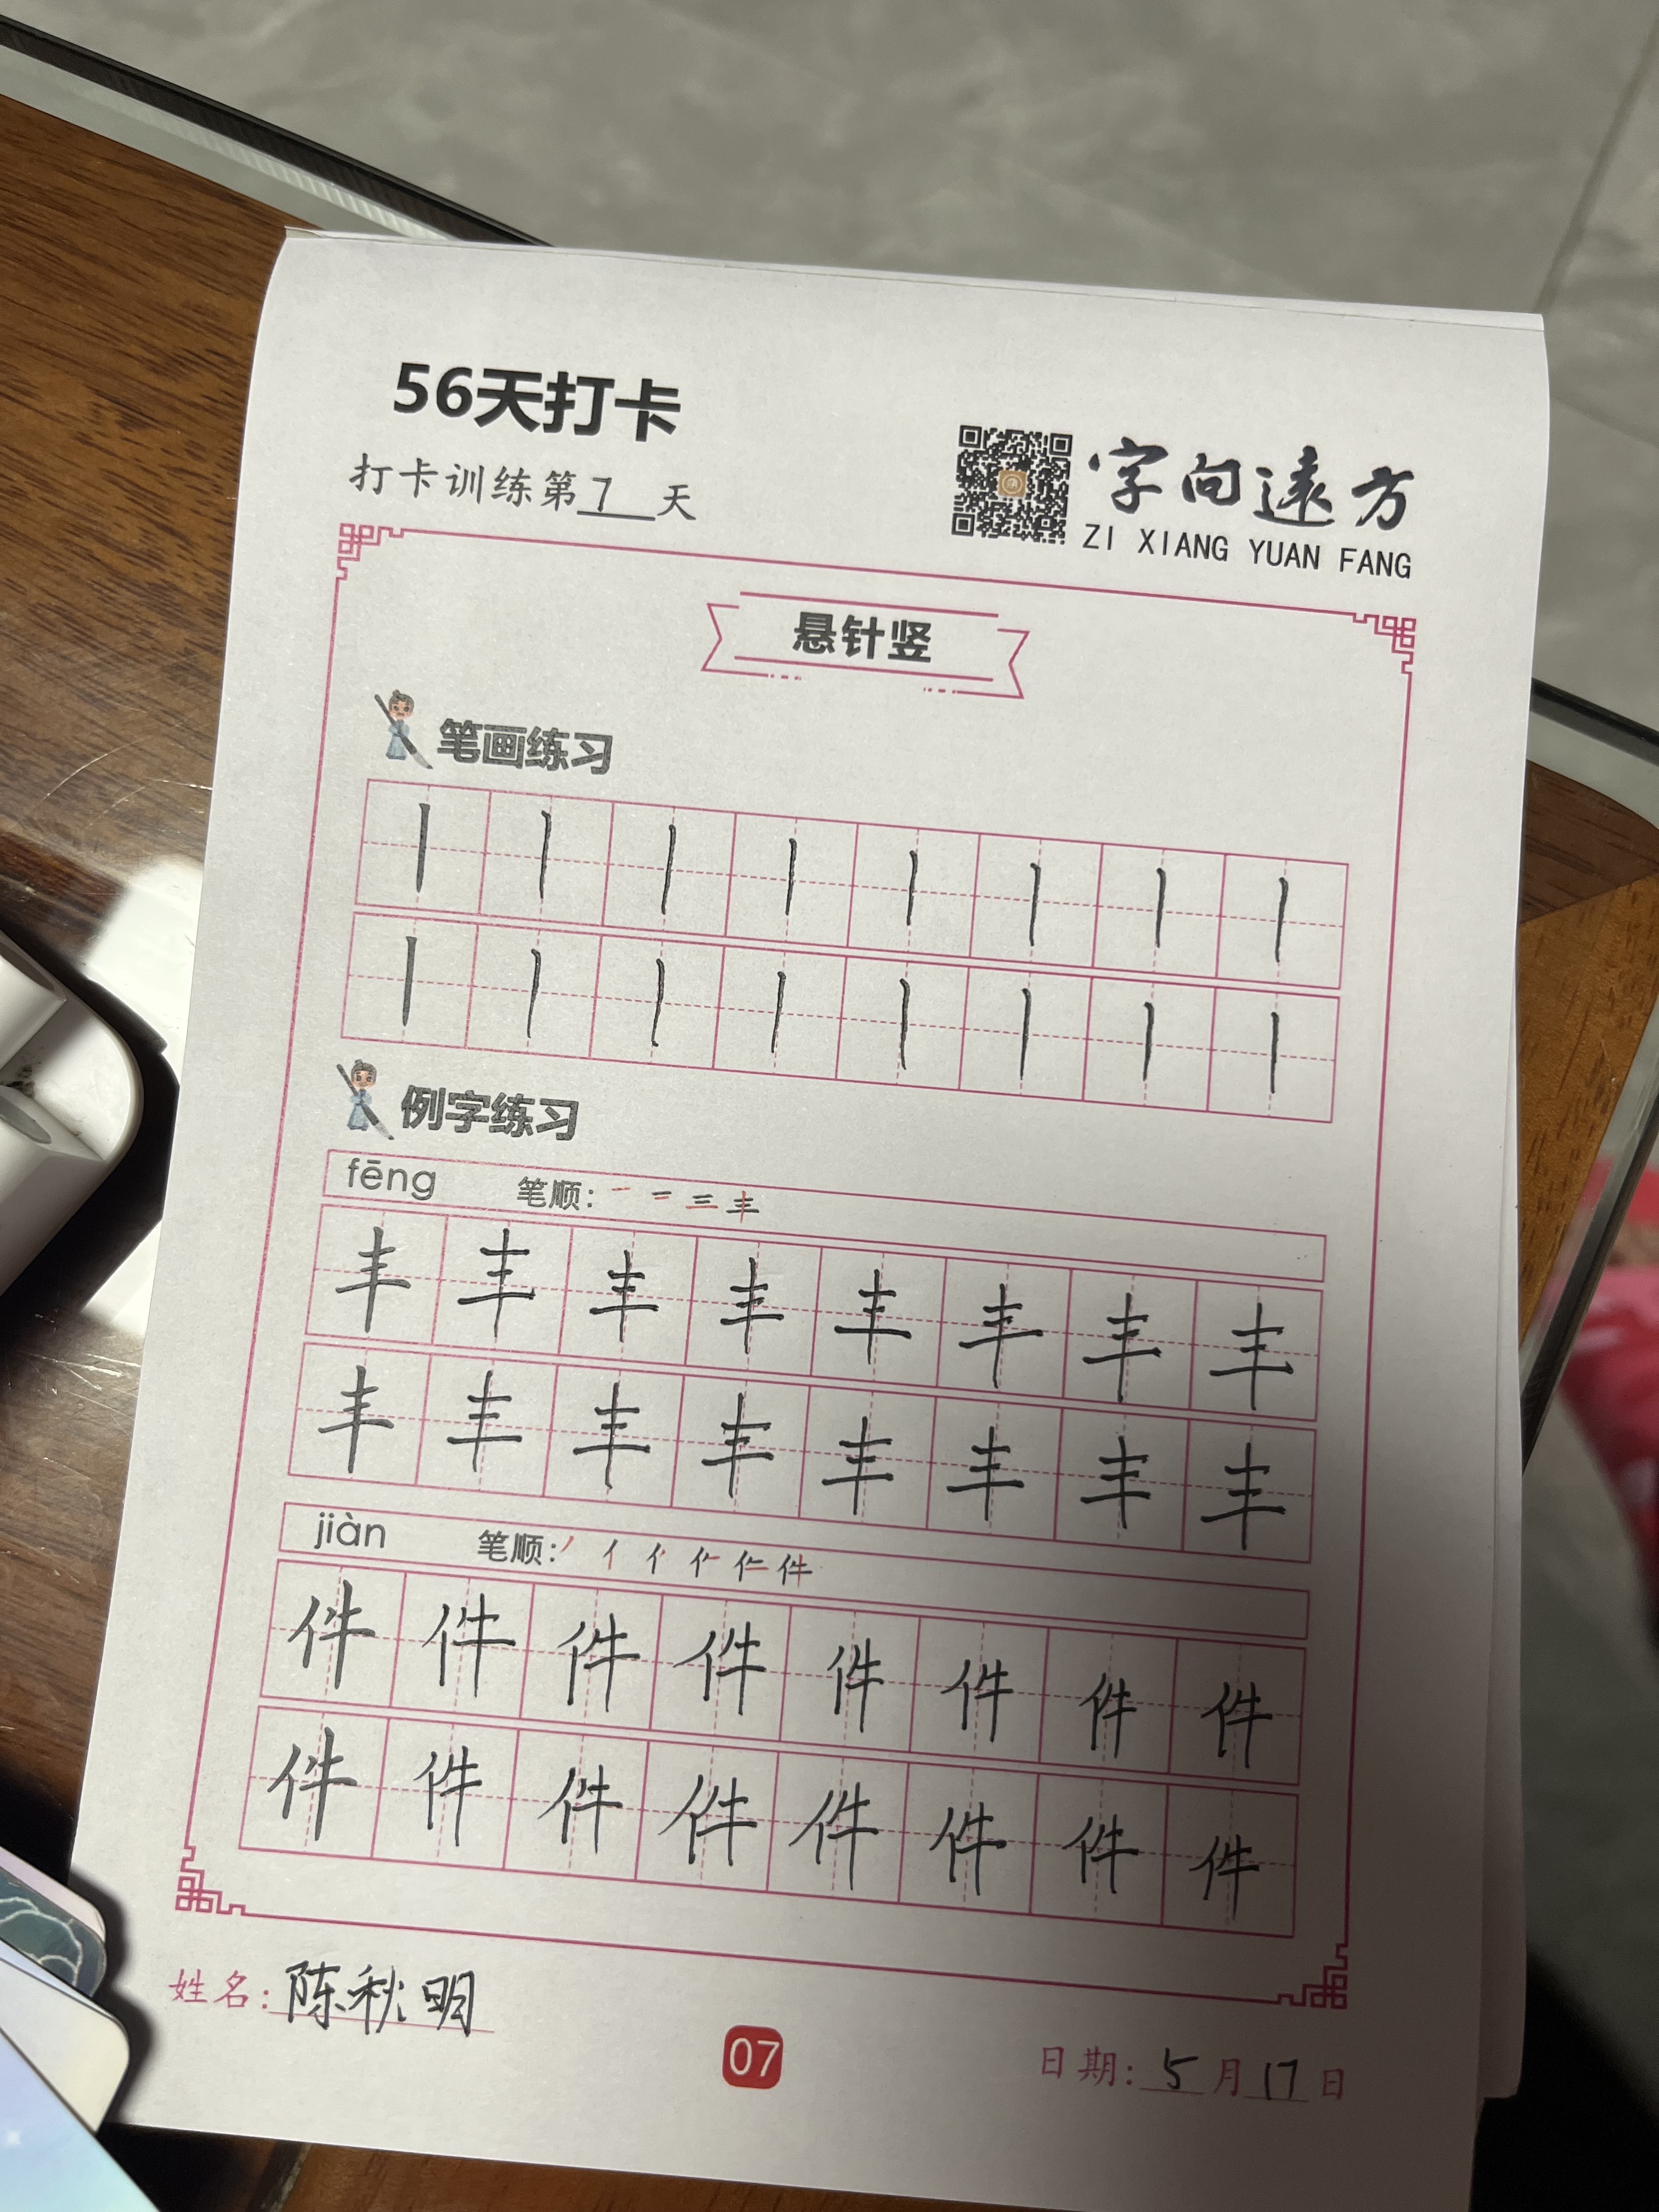 56天打卡
打卡训练第7天
字向遠方
ZI XIANG YUAN FANG
悬针竖
笔画练习
丨丨丨丨丨丨丨丨
丨丨丨丨丨丨丨丨
例字练习
fēng 笔顺: 一 二 三 丰
丰丰丰丰丰丰丰丰
丰丰丰丰丰丰丰丰
jiàn 笔顺: 丿 亻 件
件件件件件件件件
件件件件件件件件
姓名: 陈秋明
07
日期: 5月17日